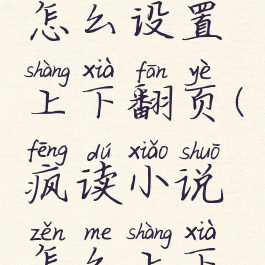 怎么设置
shàng xià fān yè
上下翻页(
fēng dú xiǎo shuō
疯读小说
zěn me shàng xià
怎么上下